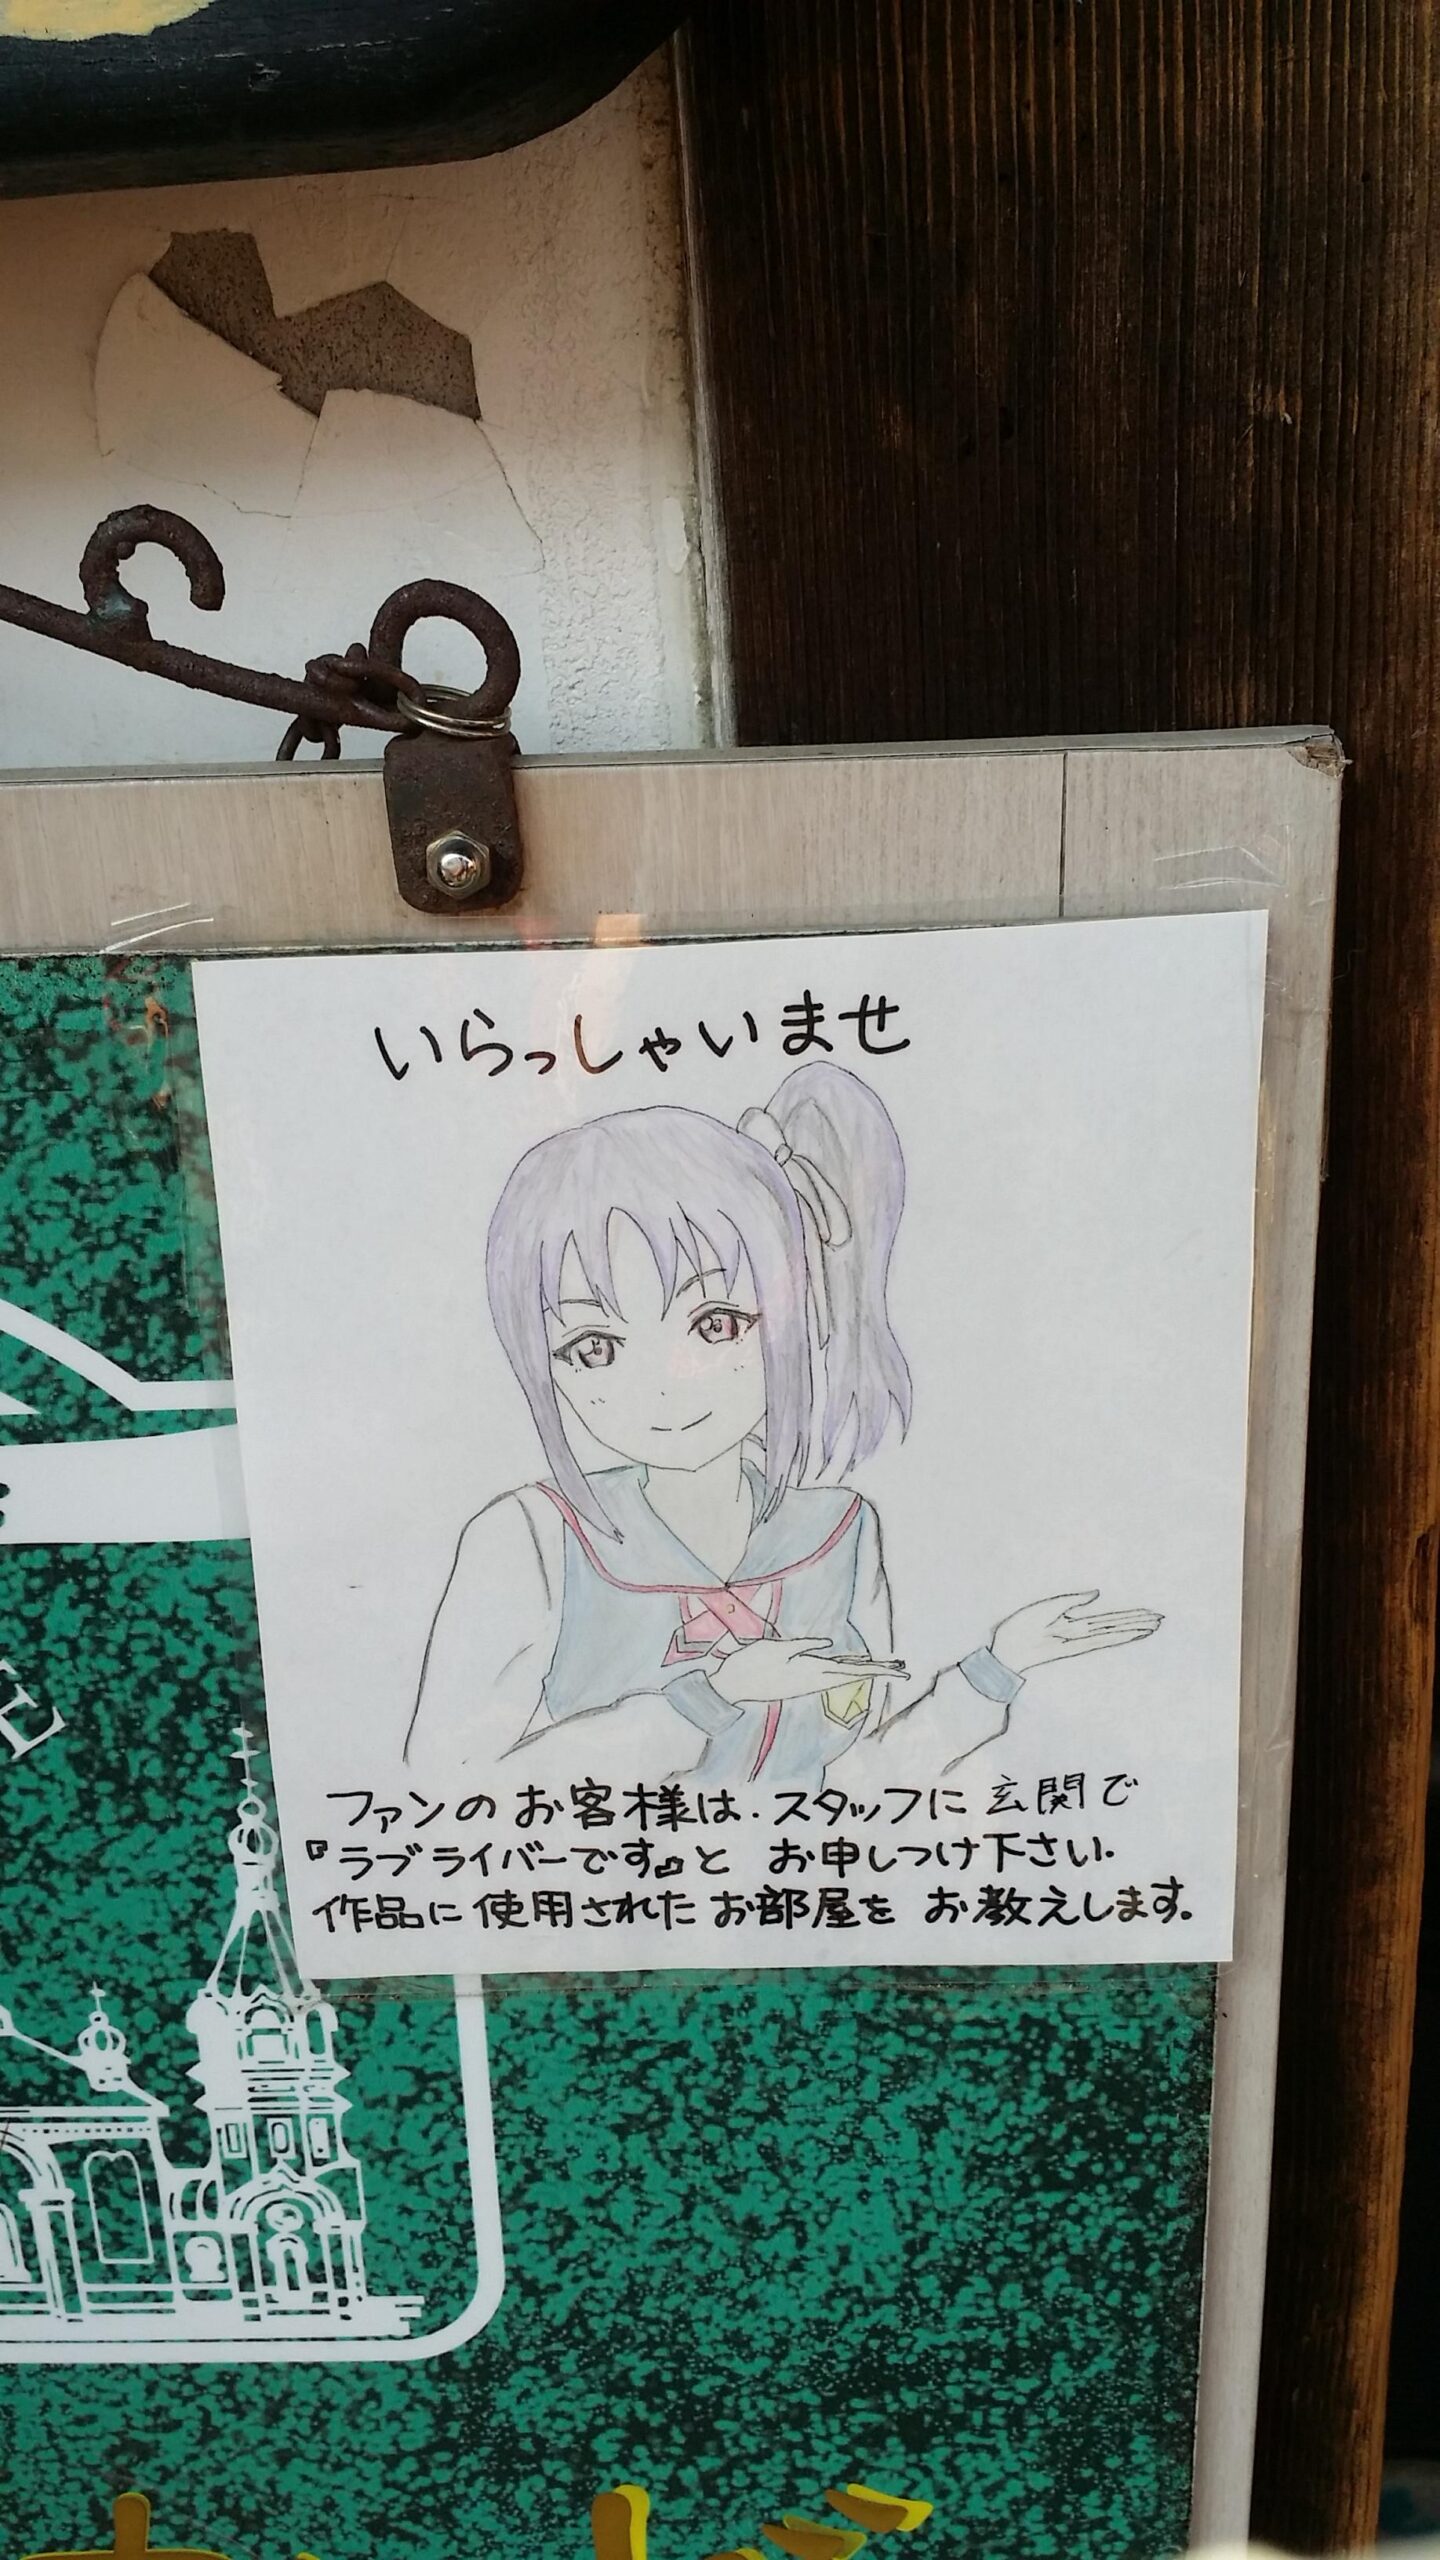 いらっしゃいませ
ファンのお客様は、スタッフに玄関で
『ラブライバーです』と お申しつけ下さい.
作品に使用されたお部屋を お教えします。